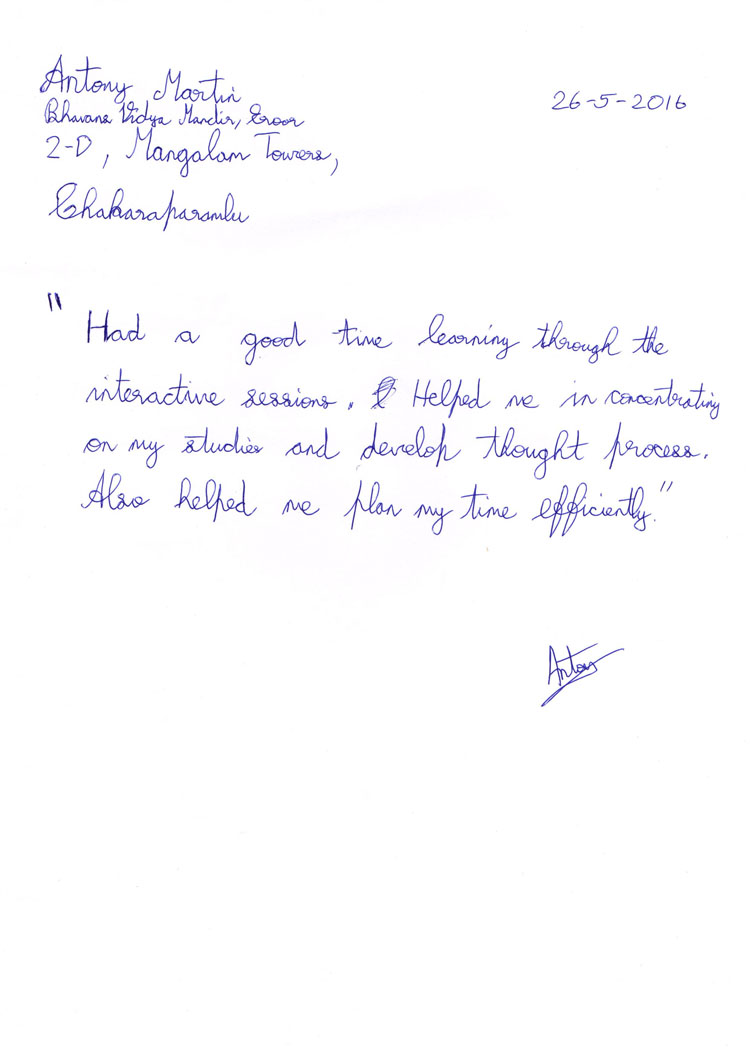 Antony Martin
26-5-2016
Bhavans Vidya Mandir, Eroor
2-D, Mangalam Towers,
Chakkaraparambu
" Had a good time learning through the
interactive sessions. Helped me in concentrating
on my studies and develop thought process.
Also helped me plan my time efficiently."
Antony